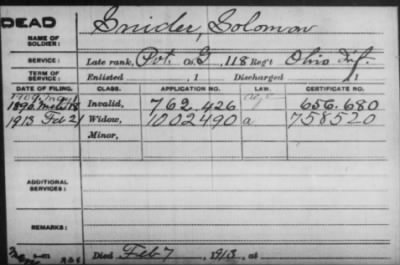 DEAD
Snider, Solomon
NAME OF SOLDIER:
SERVICE: Late rank, Pvt. Co. G, 118 Reg't Ohio Inf.
TERM OF SERVICE: Enlisted , 1 Discharged , 1
DATE OF FILING. CLASS. APPLICATION NO. LAW. CERTIFICATE NO.
1890 Invalid, 762.426 656.680
1913 Feb 21 Widow, 1002490 a 758520
Minor,
ADDITIONAL SERVICES:
REMARKS:
Died Feb 7, 1913, at